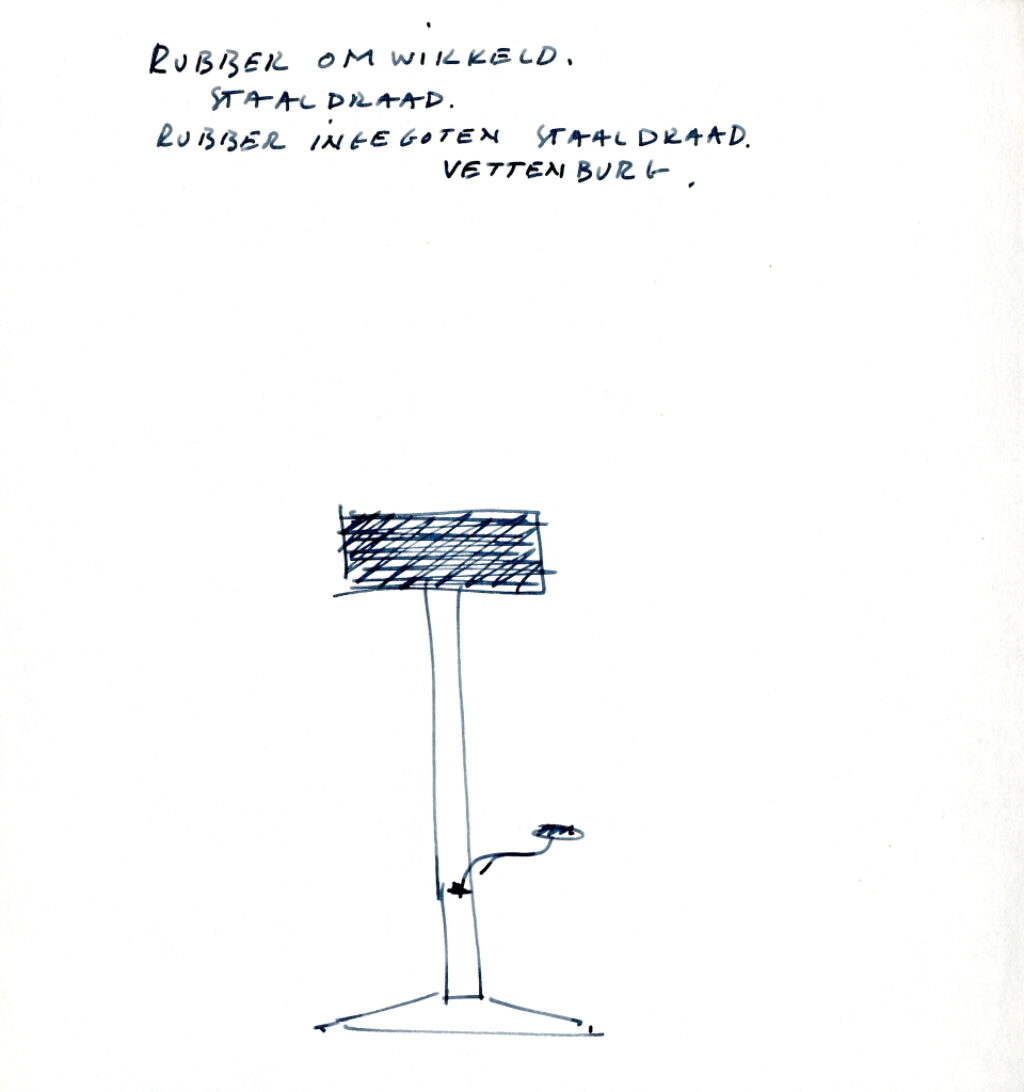 RUBBER OMWIKKELD.
STAALDRAAD.
RUBBER INGEGOTEN STAALDRAAD.
VETTENBURG.